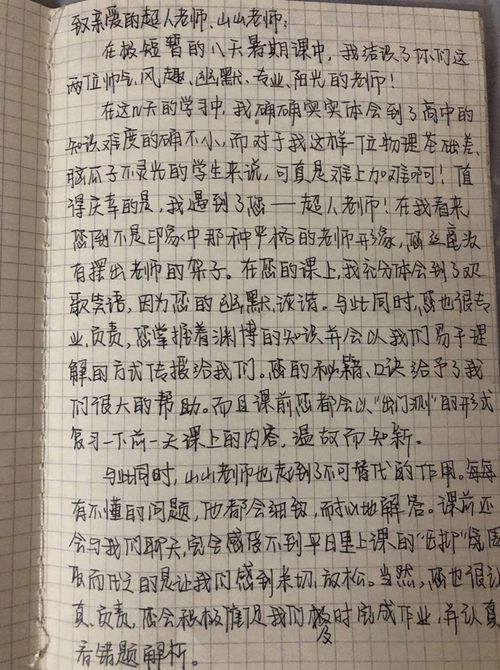 致亲爱的超人老师、山山老师:
在极短暂的八天暑期课中,我结识了你们这
两位帅气、风趣、幽默、专业、阳光的老师!
在这几天的学习中,我确确实实体会到了高中的
知识难度的确不小,而对于我这样一位物理基础差、
脑瓜子不灵光的学生来说,可真是难上加难啊!值
得庆幸的是,我遇到了您——超人老师!在我看来
您倒不是印象中那种严格的老师形象,您丝毫没
有摆出老师的架子。在您的课上,我充分体会到了欢
歌笑语,因为您的幽默、诙谐。与此同时,您也很专
业、负责,您掌握着渊博的知识并会以我们易于理
解的方式传授给我们。您的秘籍、口诀给予了我
们很大的帮助。而且课前您都会以“出门测”的形式
复习一下前一天课上的内容,温故而知新。
与此同时,山山老师也起到了不可替代的作用。每每
有不懂的问题,他都会细致、而耐心地解答。课前还
会与我们聊天,完全感受不到平日里上课的“
取而代之的是让我们感到亲切、放松。当然,您也很认
真、负责,您会积极催促我们及时完成作业,并认真
看错题解析。